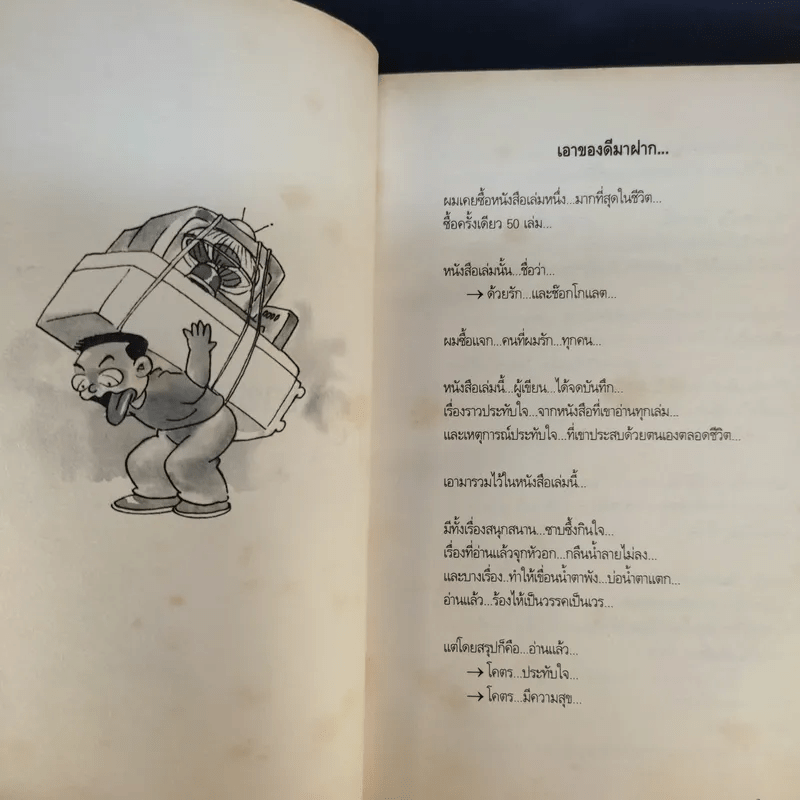 เอาของดีมาฝาก...
ผมเคยซื้อหนังสือเล่มหนึ่ง...มากที่สุดในชีวิต...
ซื้อครั้งเดียว 50 เล่ม...
หนังสือเล่มนั้น...ชื่อว่า...
→ ด้วยรัก...และช๊อกโกแลต...
ผมซื้อแจก...คนที่ผมรัก...ทุกคน...
หนังสือเล่มนี้...ผู้เขียน...ได้จดบันทึก...
เรื่องราวประทับใจ...จากหนังสือที่เขาอ่านทุกเล่ม...
และเหตุการณ์ประทับใจ...ที่เขาประสบด้วยตนเองตลอดชีวิต...
เอามารวมไว้ในหนังสือเล่มนี้...
มีทั้งเรื่องสนุกสนาน...ซาบซึ้งกินใจ...
เรื่องที่อ่านแล้วจุกหัวอก...กลืนน้ำลายไม่ลง...
และบางเรื่อง..ทำให้เขื่อนน้ำตาพัง...บ่อน้ำตาแตก...
อ่านแล้ว...ร้องไห้เป็นวรรคเป็นเวร...
แต่โดยสรุปก็คือ...อ่านแล้ว...
→ โคตร...ประทับใจ...
→ โคตร...มีความสุข...